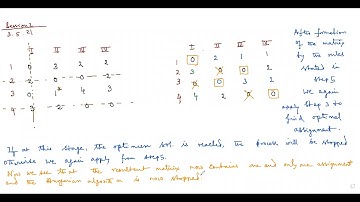 Session 2
3.5.21
I II III IV
1 0 3 2 2
2 2 0 0 0
3 0 1* 4 3
4 3 2 0 0
I II III IV
1 0 2 1 1
2 3 0 0 0
3 0 0 3 2
4 4 2 0 0
After formation
of the matrix
by the rules
stated in
step 5
we again
apply step 3 to
find optimal
assignment.
If at this stage, the optimum sol. is reached, the process will be stopped
otherwise we again apply from step 5.
Now we see that the resultant matrix now contains one and only one assignment
and the Hungarian algorithm is now stopped